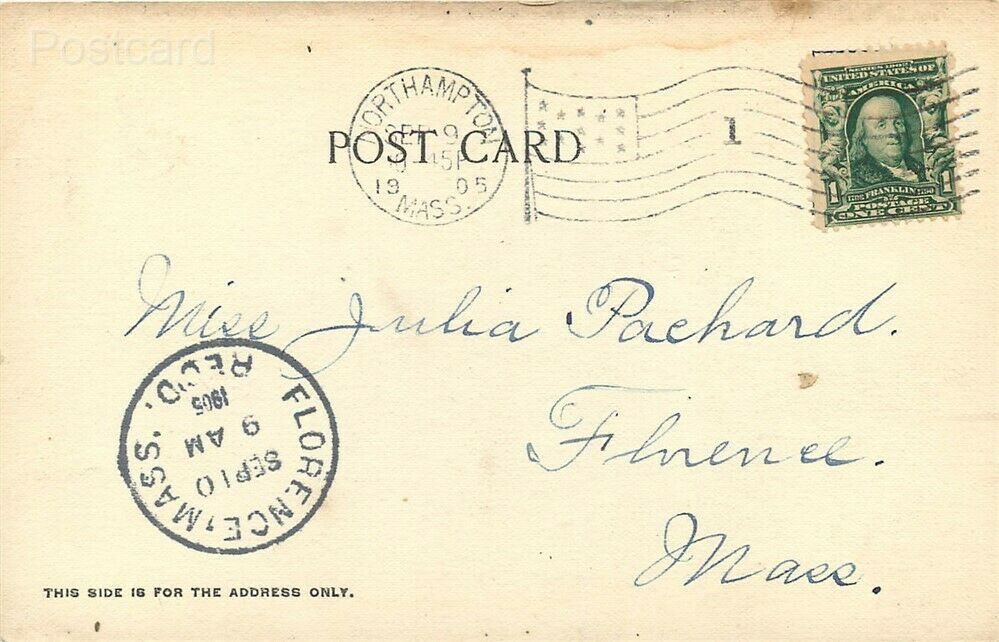 Postcard
NORTHAMPTON
SEP 9
15P
1905
MASS.
1
POST CARD
SERIES 1902
UNITED STATES OF
AMERICA
1 FRANKLIN 1
POSTAGE
ONE CENT
Miss Julia Packard.
Florence.
Mass.
FLORENCE, MASS.
REC'D.
1905
9 AM
SEP 10
THIS SIDE IS FOR THE ADDRESS ONLY.